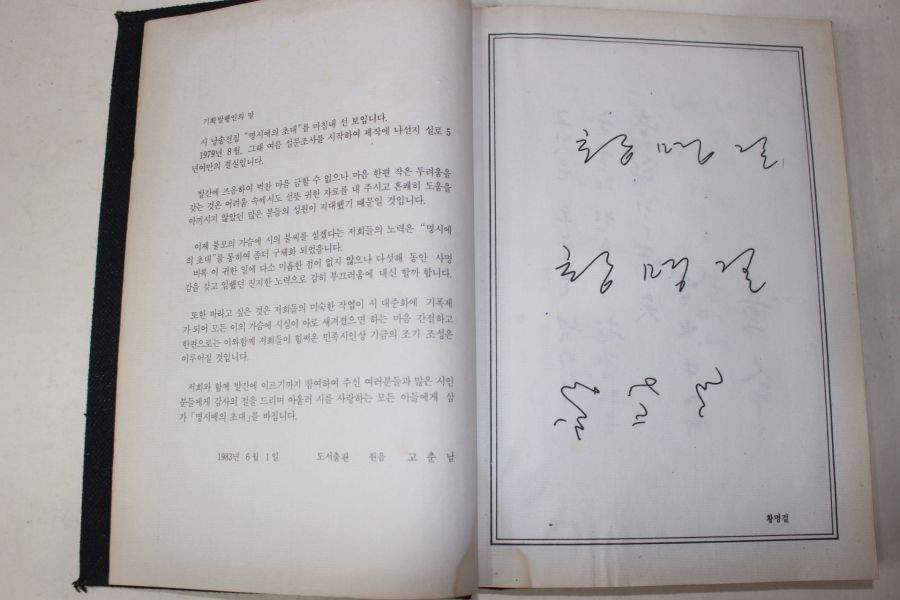 기획발행인의 말
시 낭송전집 "명시에의 초대"를 마침내 선 보입니다.
1979년 8월, 그해 여름 설문조사를 시작하여 제작에 나선지 실로 5
년여만의 결실입니다.
발간에 즈음하여 벅찬 마음 금할 수 없으나 마음 한편 작은 두려움을
갖는 것은 어려움 속에서도 선뜻 귀한 자료를 내 주시고 흔쾌히 도움을
아끼시지 않았던 많은 분들의 성원이 지대했기 때문일 것입니다.
이제 불모의 가슴에 시의 불씨를 심겠다는 저희들의 노력은 "명시에
의 초대"를 통하여 좀더 구체화 되었읍니다.
비록 이 귀한 일에 다소 미흡한 점이 없지 않으나 다섯해 동안 사명
감을 갖고 임했던 진지한 노력으로 감히 부끄러움에 대신 할까 합니다.
또한 바라고 싶은 것은 저희들의 미숙한 작업이 시 대중화에 기폭제
가 되어 모든 이의 가슴에 시심이 아로 새겨졌으면 하는 마음 간절하고
한편으로는 이와함께 저희들이 힘써온 민족시인상 기금의 조기 조성은
이루어질 것입니다.
저희와 함께 발간에 이르기까지 참여하여 주신 여러분들과 많은 시인
분들에게 감사의 절을 드리며 아울러 시를 사랑하는 모든 이들에게 삼
가「명시에의 초대」를 바칩니다.
1983년 6월 1일 도서출판 원음 고춘남
황명걸
황명걸
황명걸